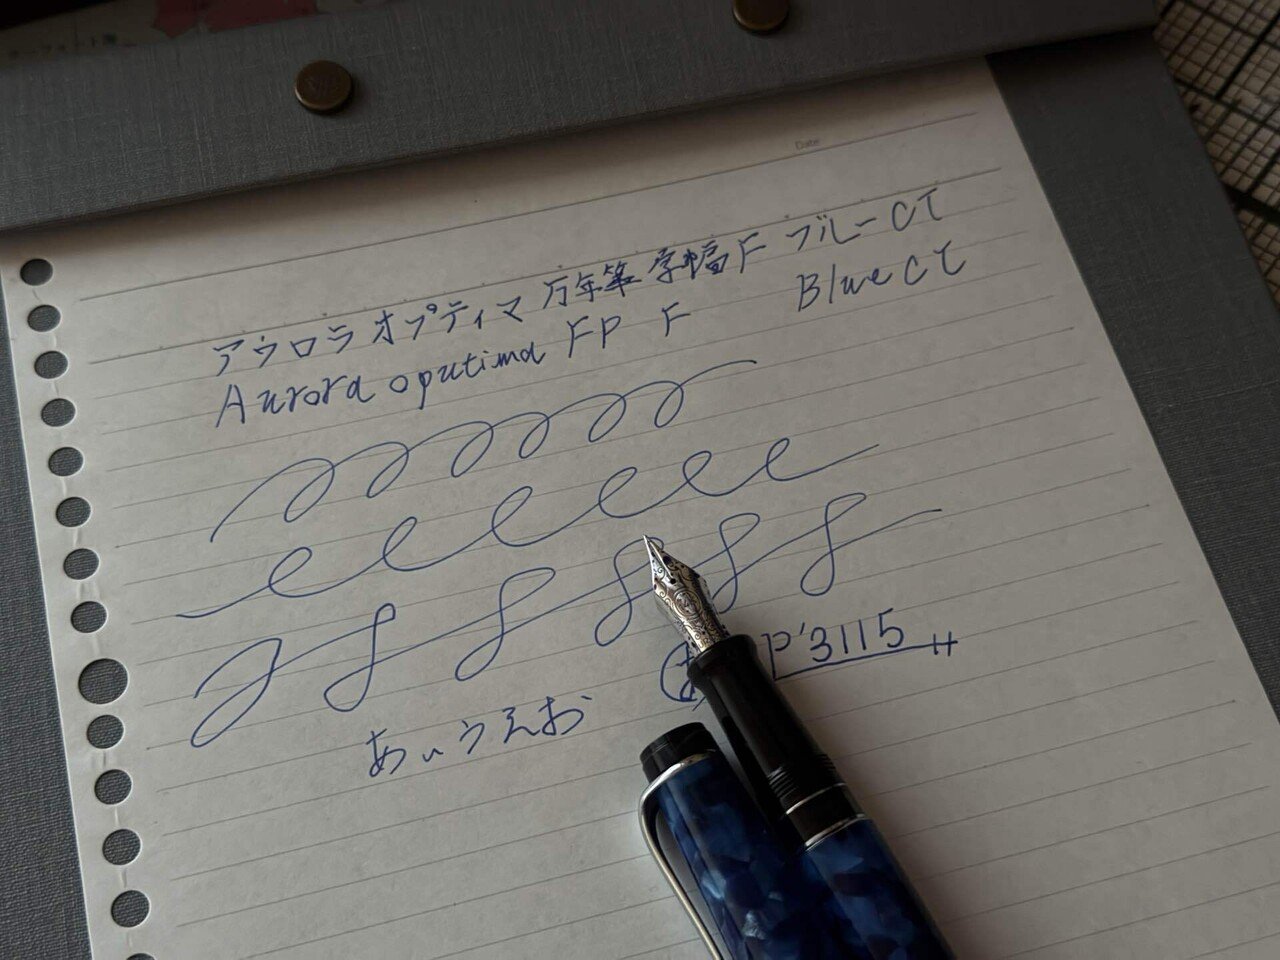 Date
アウロラ オプティマ 万年筆 字幅F ブルーCT
Aurora oputima FP F Blue CT
あいうえお
P'3115